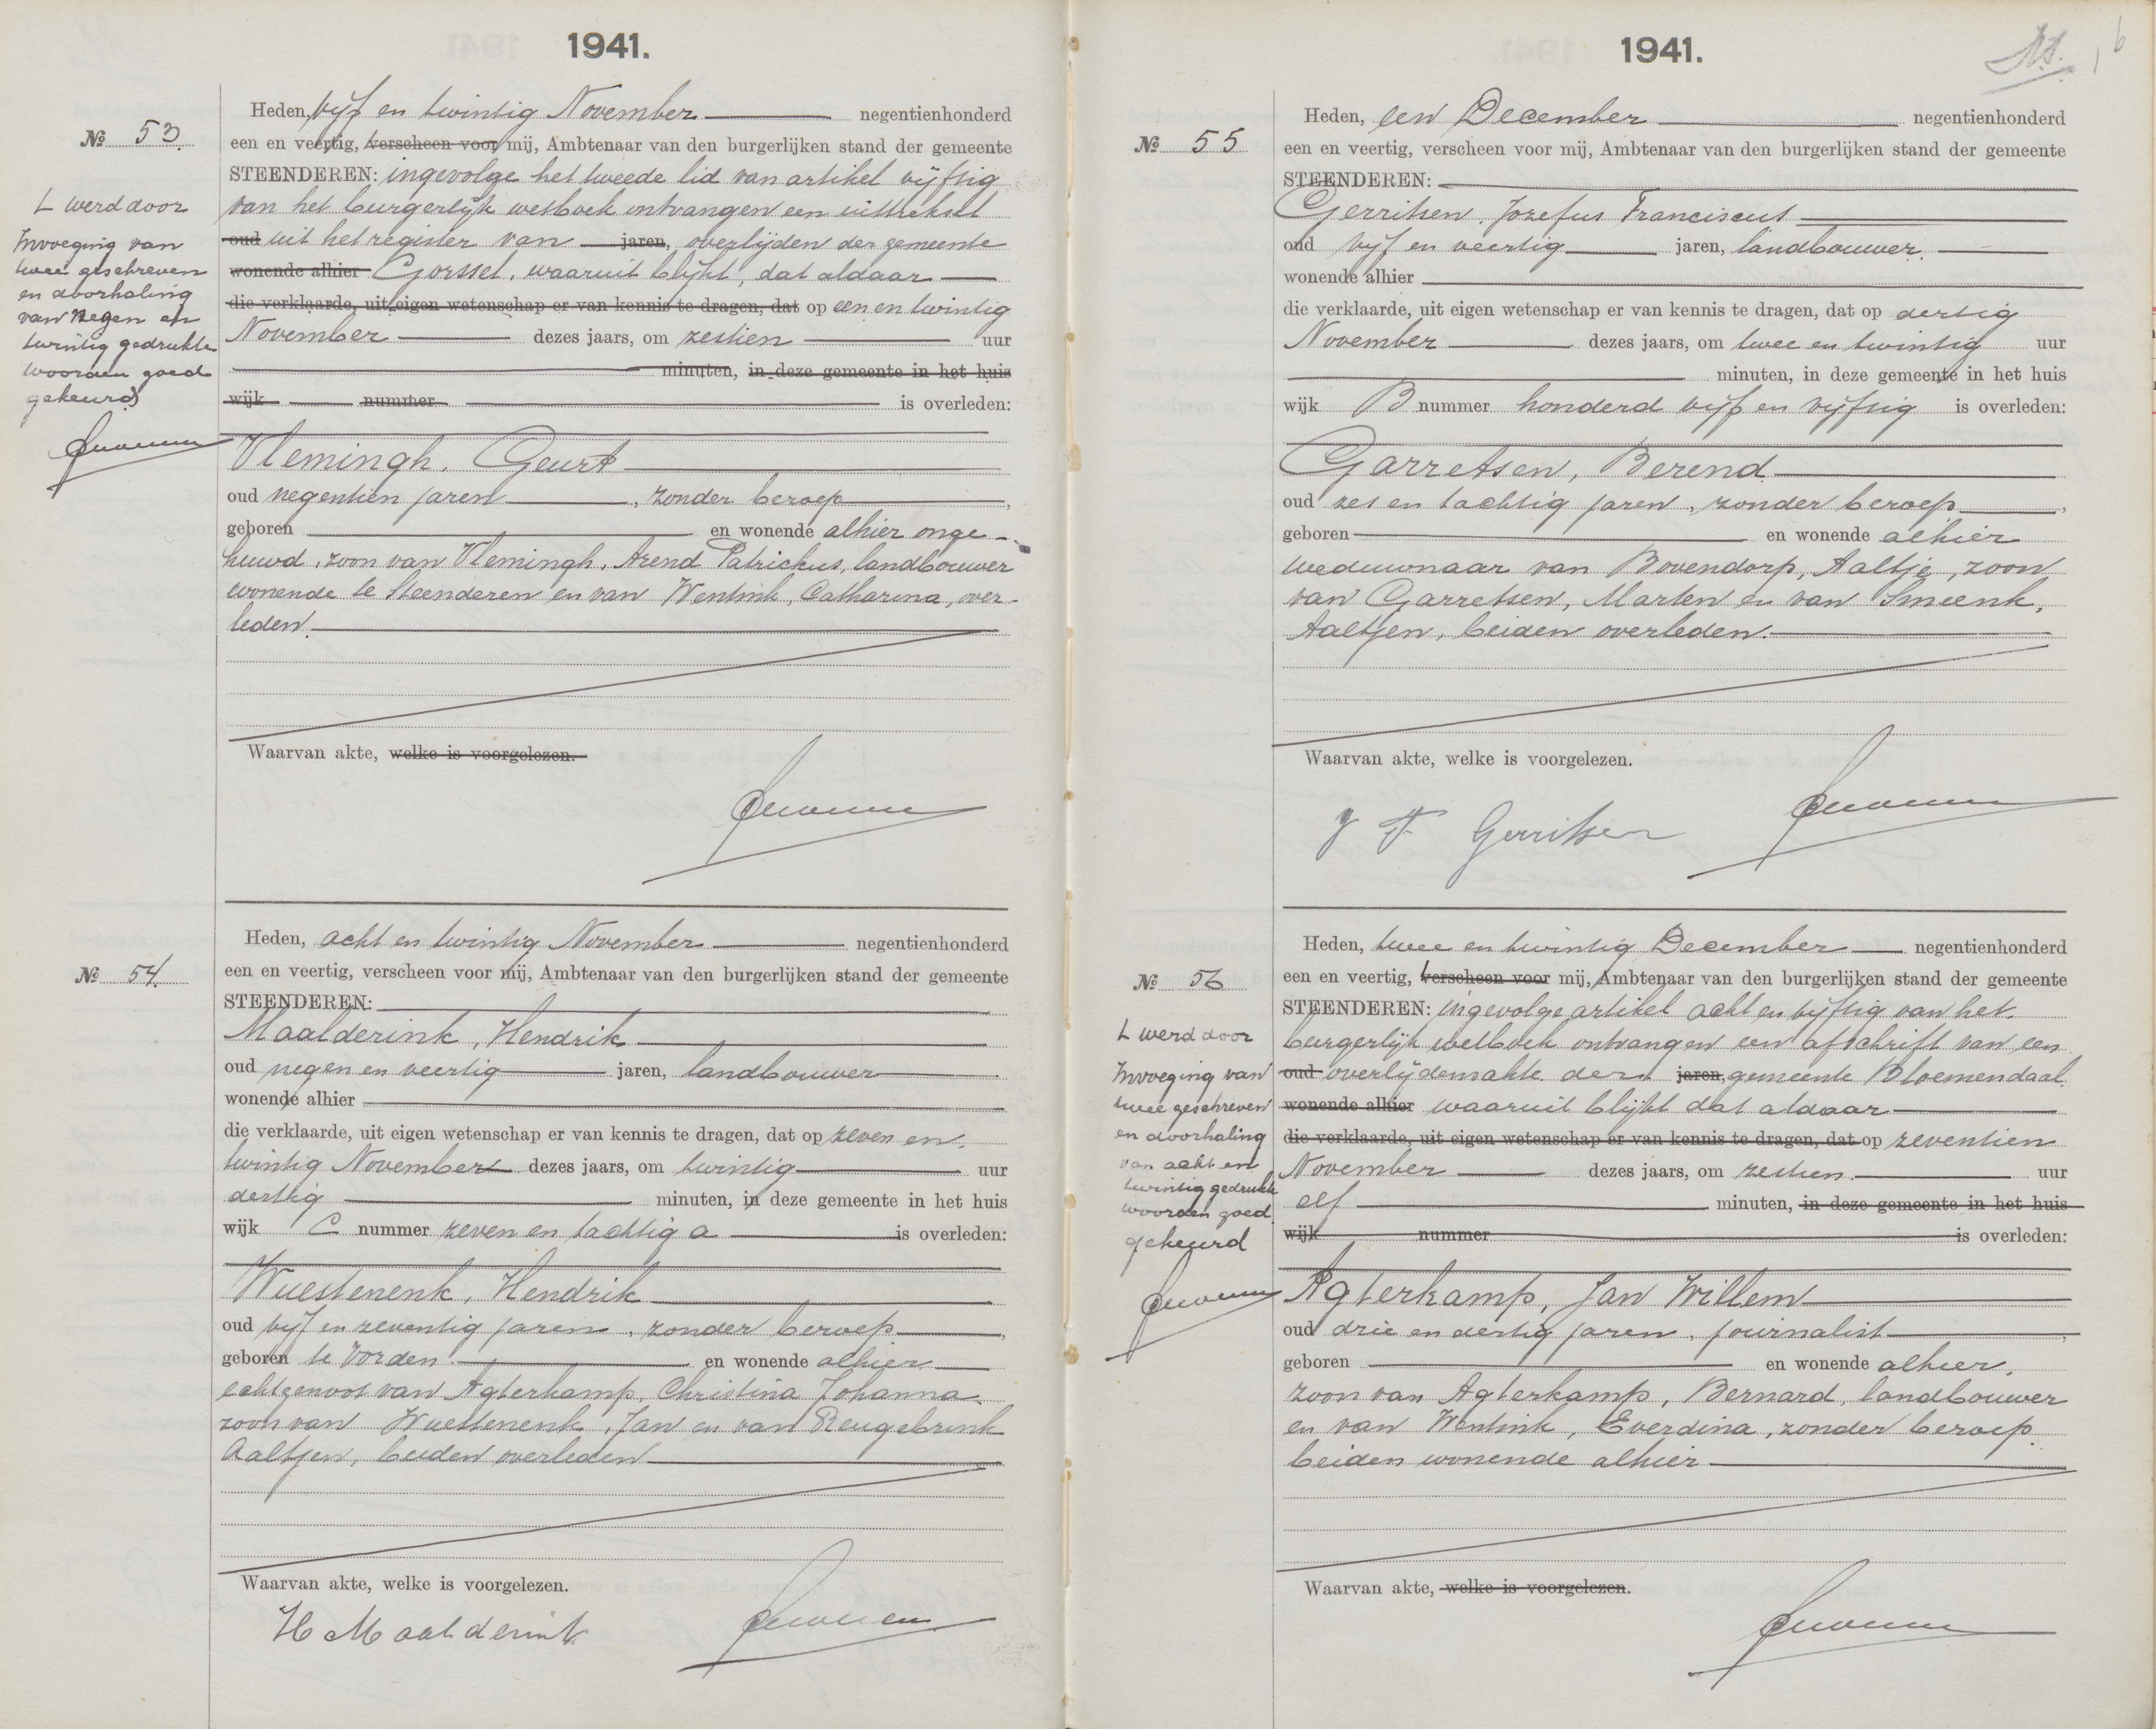 1941.
Nº 53.
Heden, vijf en twintig November negentienhonderd
een en veertig, verscheen voor mij, Ambtenaar van den burgerlijken stand der gemeente
STEENDEREN: ingevolge het tweede lid van artikel vijftig
van het burgerlijk wetboek ontvangen een uittreksel
oud uit het register van jaren, overlijden der gemeente
wonende alhier Gorssel, waaruit blijkt, dat aldaar
die verklaarde, uit eigen wetenschap er van kennis te dragen, dat op een en twintig
November dezes jaars, om zestien uur
minuten, in deze gemeente in het huis
wijk nummer is overleden:
Vlemingh, Geurt
oud negentien jaren, zonder beroep,
geboren en wonende alhier onge-
huwd, zoon van Vlemingh, Arend Patrickus, landbouwer
wonende te Steenderen en van Wentink, Catharina, over-
leden.
Waarvan akte, welke is voorgelezen.
L werd door
Invoeging van
twee geschreven
en doorhaling
van negen en
twintig gedrukte
woorden goed
gekeurd
Nº 54.
Heden, acht en twintig November negentienhonderd
een en veertig, verscheen voor mij, Ambtenaar van den burgerlijken stand der gemeente
STEENDEREN:
Maalderink, Hendrik
oud negen en veertig jaren, landbouwer
wonende alhier
die verklaarde, uit eigen wetenschap er van kennis te dragen, dat op zeven en
twintig November dezes jaars, om twintig uur
dertig minuten, in deze gemeente in het huis
wijk C nummer zeven en tachtig a is overleden:
Wuestenenk, Hendrik
oud vijf en zeventig jaren, zonder beroep,
geboren te Vorden en wonende alhier
echtgenoot van Agterkamp, Christina Johanna,
zoon van Wuestenenk, Jan en van Reugebrink
Aaltjen, beiden overleden
Waarvan akte, welke is voorgelezen.
H Maalderink
1941.
6
Nº 55
Heden, een December negentienhonderd
een en veertig, verscheen voor mij, Ambtenaar van den burgerlijken stand der gemeente
STEENDEREN:
Gerritsen, Jozefus Franciscus
oud vijf en veertig jaren, landbouwer,
wonende alhier
die verklaarde, uit eigen wetenschap er van kennis te dragen, dat op dertig
November dezes jaars, om twee en twintig uur
minuten, in deze gemeente in het huis
wijk B nummer honderd vijf en vijftig is overleden:
Garretsen, Berend
oud zes en tachtig jaren, zonder beroep,
geboren en wonende alhier
weduwnaar van Bovendorp, Aaltje, zoon
van Garretsen, Marten en van Smeenk,
Aaltjen, beiden overleden.
Waarvan akte, welke is voorgelezen.
J F Gerritsen
Nº 56
Heden, twee en twintig December negentienhonderd
een en veertig, verscheen voor mij, Ambtenaar van den burgerlijken stand der gemeente
STEENDEREN: ingevolge artikel acht en vijftig van het
burgerlijk wetboek ontvangen een afschrift van een
oud overlijdensakte der jaren, gemeente Bloemendaal
wonende alhier waaruit blijkt dat aldaar
die verklaarde, uit eigen wetenschap er van kennis te dragen, dat op zeventien
November dezes jaars, om zestien uur
elf minuten, in deze gemeente in het huis
wijk nummer is overleden:
Agterkamp, Jan Willem
oud drie en dertig jaren, journalist,
geboren en wonende alhier,
zoon van Agterkamp, Bernard, landbouwer
en van Wentink, Everdina, zonder beroep,
beiden wonende alhier
Waarvan akte, welke is voorgelezen.
L werd door
Invoeging van
twee geschreven
en doorhaling
van acht en
twintig gedrukte
woorden goed
gekeurd